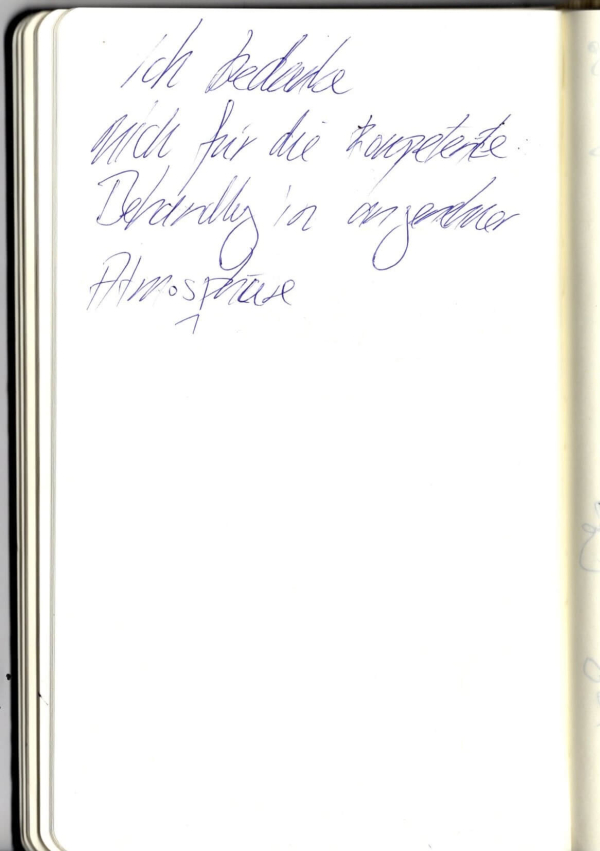 Ich bedanke
mich für die kompetente
Behandlung in angenehmer
Atmosphäre